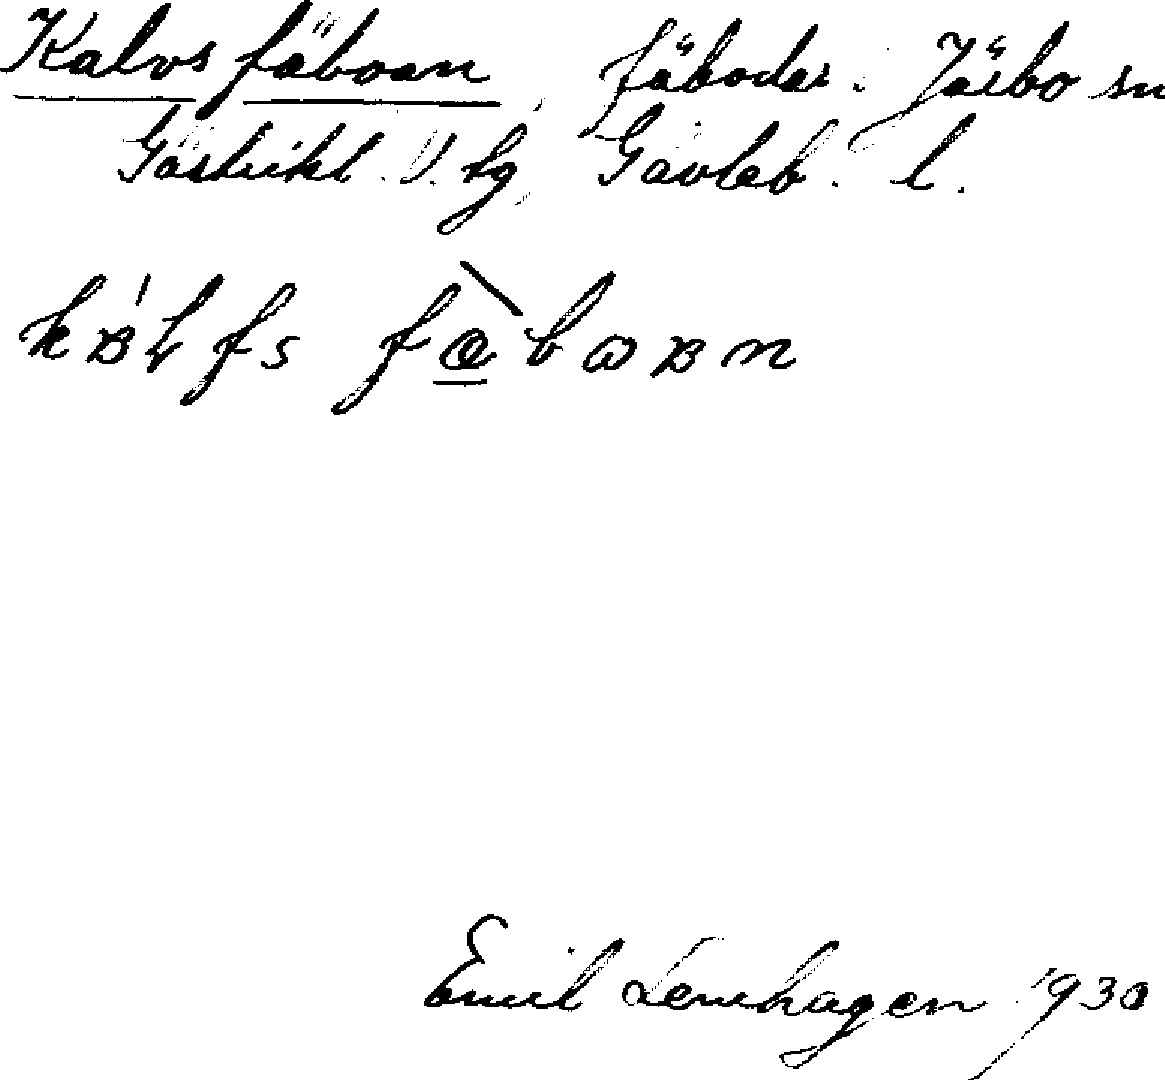 Kalvs fäboan, fäbodar. Järbo sn
Gästrikl. V. tg, Gävleb. l.
kɒ́lfs fæ̀bωɒn
Emil Lenhagen 1930